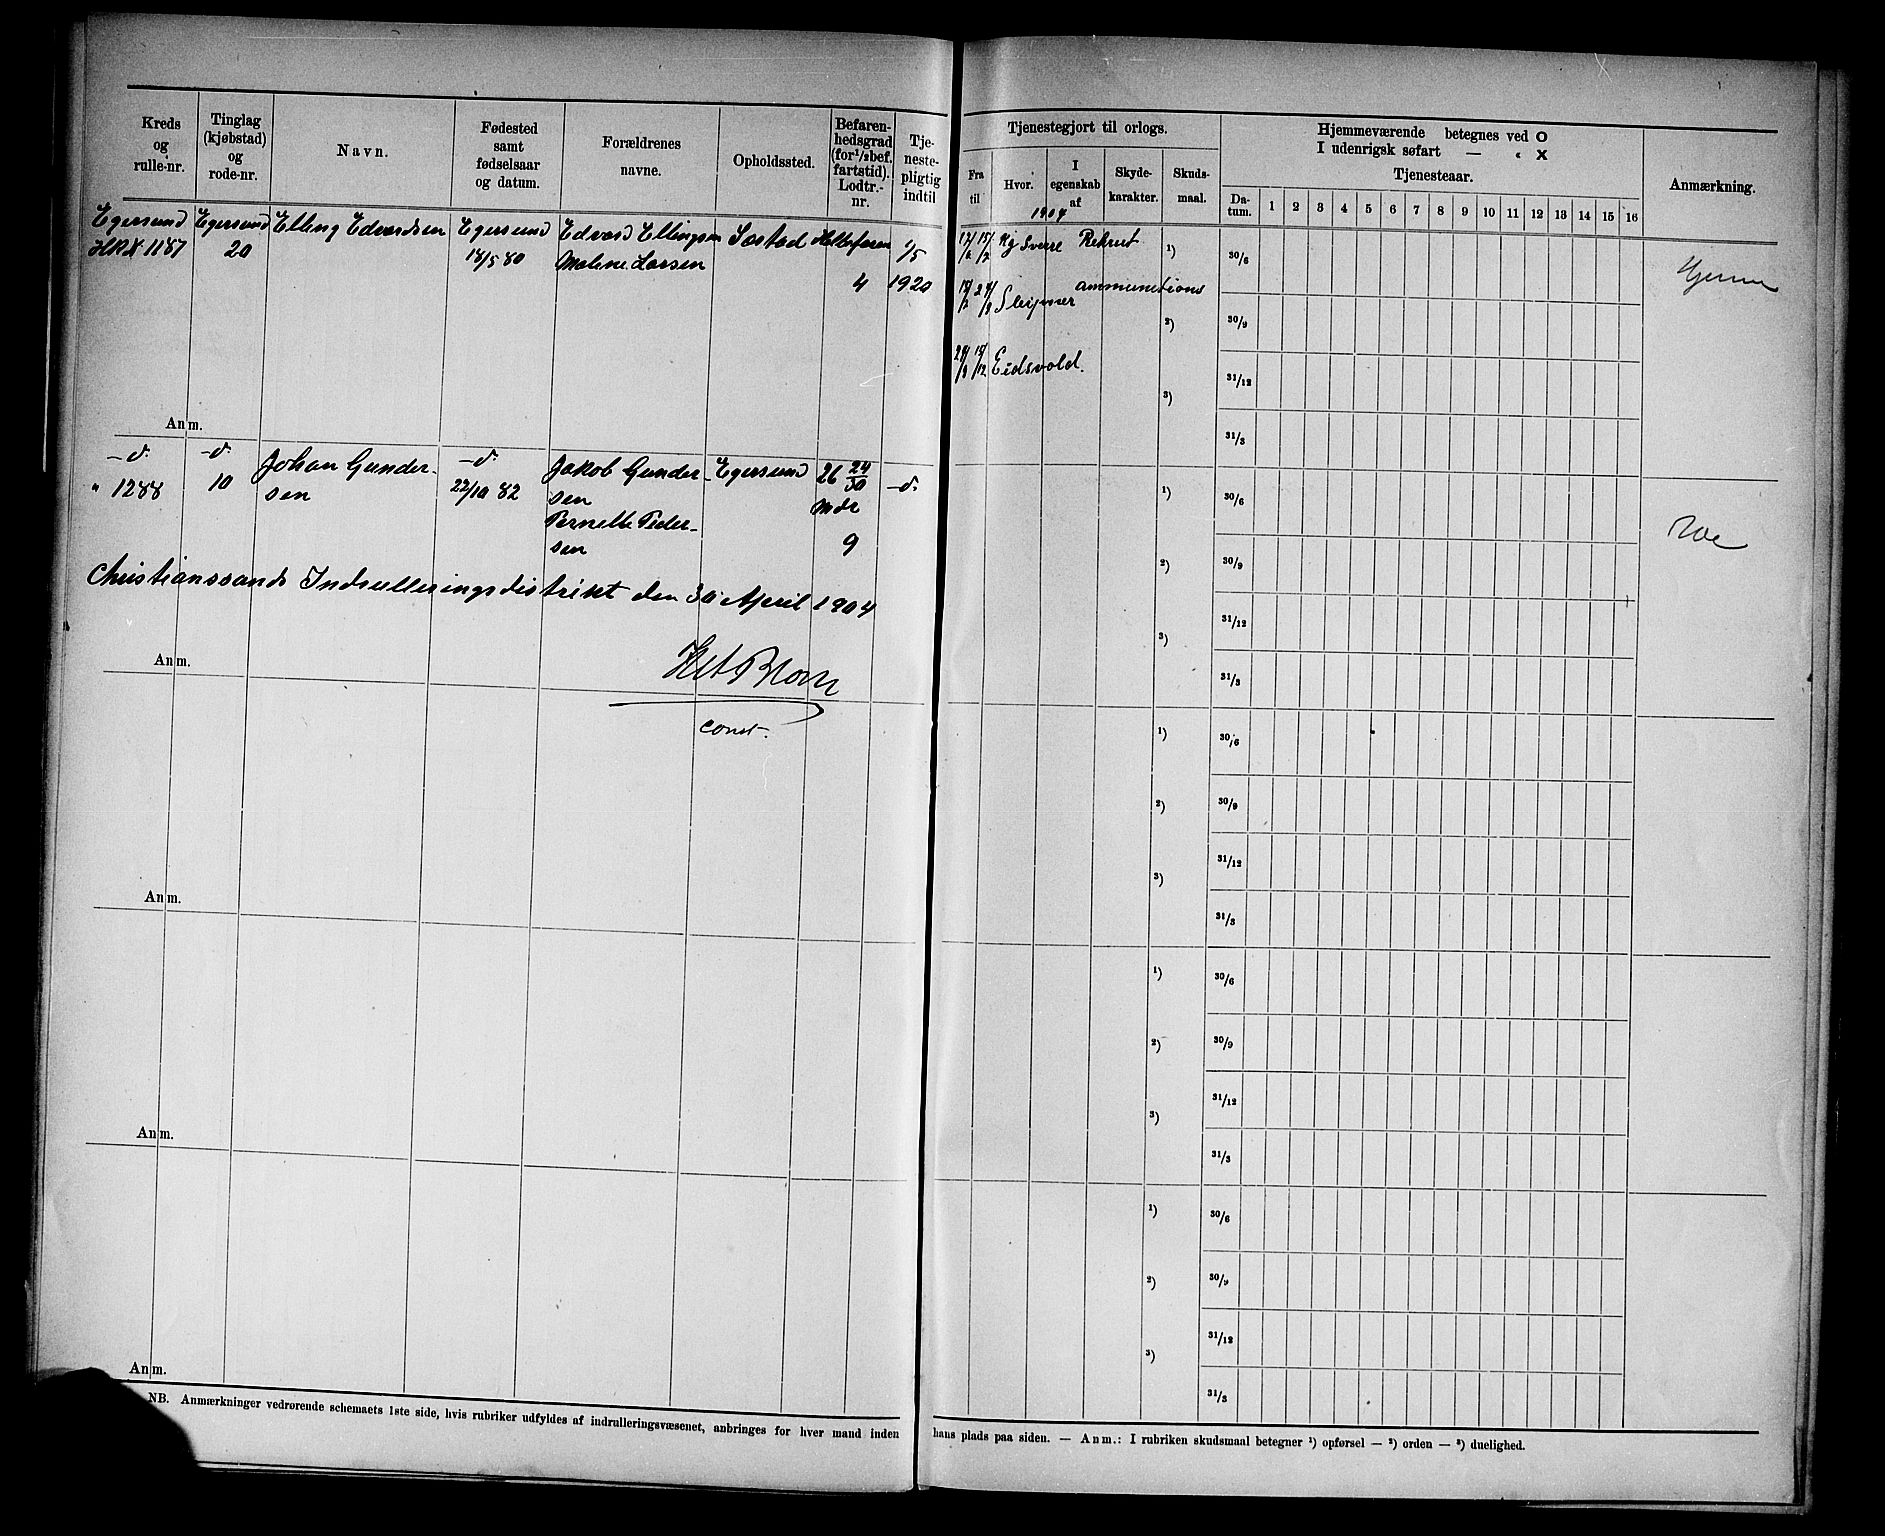 Kreds og rulle-nr.
Tinglag (kjøbstad) og rode-nr.
Navn.
Fødested samt fødselsaar og datum.
Forældrenes navne.
Opholdssted.
Befarenhedsgrad (for 1/2 bef. fartstid). Lodtr.-nr.
Tjenestepligtig indtil
Tjenestegjort til orlogs.
Fra til
Hvor.
I egenskab af
Skydekarakter.
Skudsmaal.
Hjemmeværende betegnes ved O
I udenrigsk søfart — « X
Tjenesteaar.
Datum. 1 2 3 4 5 6 7 8 9 10 11 12 13 14 15 16
Anmærkning.
1904
Egersund Egersund Elling Edvardsen Egersund Edvard Ellingsen
1187 20 18/5 80 Malene Larsen
4 1/5 1920
Kg Sverre Rekrut
Sleipner ammunitions
Eidsvold.
Hjemme
1) 30/6
2) 30/9
31/12
3)
31/3
Anm.
-d- -d- Johan Gundersen -d- Jakob Gundersen Egersund 26 24/30 -d-
" 1288 10 22/10 82 Mdr
Pernelle Pedersen 9
1) 30/6
2) 30/9
31/12
3)
31/3
Christianssands Indrulleringsdistrikt den 30 April 1904
const.
Anm.
1) 30/6
2) 30/9
31/12
3)
31/3
Anm.
1) 30/6
2) 30/9
31/12
3)
31/3
Anm.
1) 30/6
2) 30/9
31/12
3)
31/3
Anm.
NB. Anmærkninger vedrørende schemaets 1ste side, hvis rubriker udfyldes af indrulleringsvæsenet, anbringes for hver mand inden
hans plads paa siden. — Anm.: I rubriken skudsmaal betegner 1) opførsel — 2) orden — 3) duelighed.